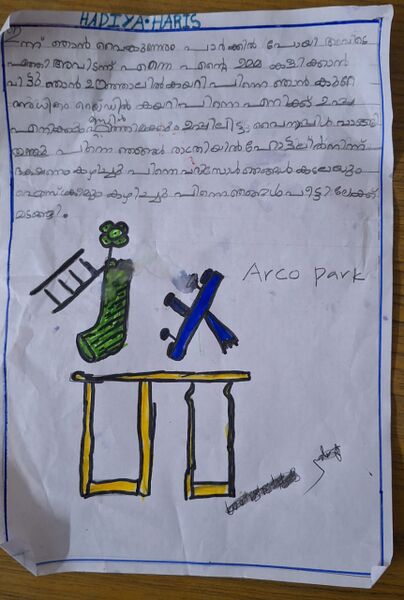 HADIYA HARIS
ഇന്ന് ഞാൻ വൈകുന്നേരം പാർക്കിൽ പോയി അവിടെ
എത്തി അവിടന്ന് എന്നെ എന്റെ ഉമ്മ കളിക്കാൻ
വിട്ടു ഞാൻ ഊഞ്ഞാലിൽ കയറി പിന്നെ ഞാൻ കുറെ
സ്ലൈഡിൽ കയറി പിന്നെ എനിക്ക് ഉമ്മ
വാങ്ങി
തന്നു പിന്നെ ഞങ്ങൾ രാത്രിയിൽ ഹോട്ടലിൽ നിന്ന്
ഭക്ഷണം കഴിച്ചു പിന്നെ ഞങ്ങൾ കടലയും
ഐസ്ക്രീമും കഴിച്ചു പിന്നെ ഞങ്ങൾ വീട്ടിലേക്ക്
മടങ്ങി.
Arco park